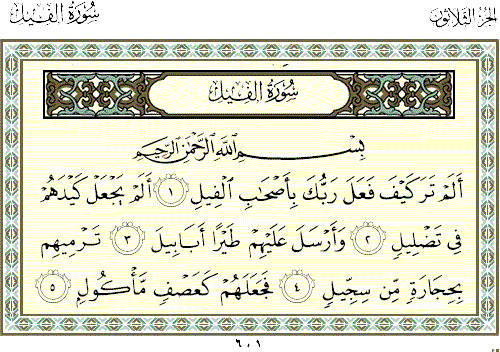 الجزء الثلاثون
سورة الفيل
سُورَةُ الفِيلِ
بِسْمِ اللَّهِ الرَّحْمَٰنِ الرَّحِيمِ
أَلَمْ تَرَ كَيْفَ فَعَلَ رَبُّكَ بِأَصْحَابِ الْفِيلِ ١ أَلَمْ يَجْعَلْ كَيْدَهُمْ
فِي تَضْلِيلٍ ٢ وَأَرْسَلَ عَلَيْهِمْ طَيْرًا أَبَابِيلَ ٣ تَرْمِيهِم
بِحِجَارَةٍ مِّن سِجِّيلٍ ٤ فَجَعَلَهُمْ كَعَصْفٍ مَّأْكُولٍ ٥
٦٠١